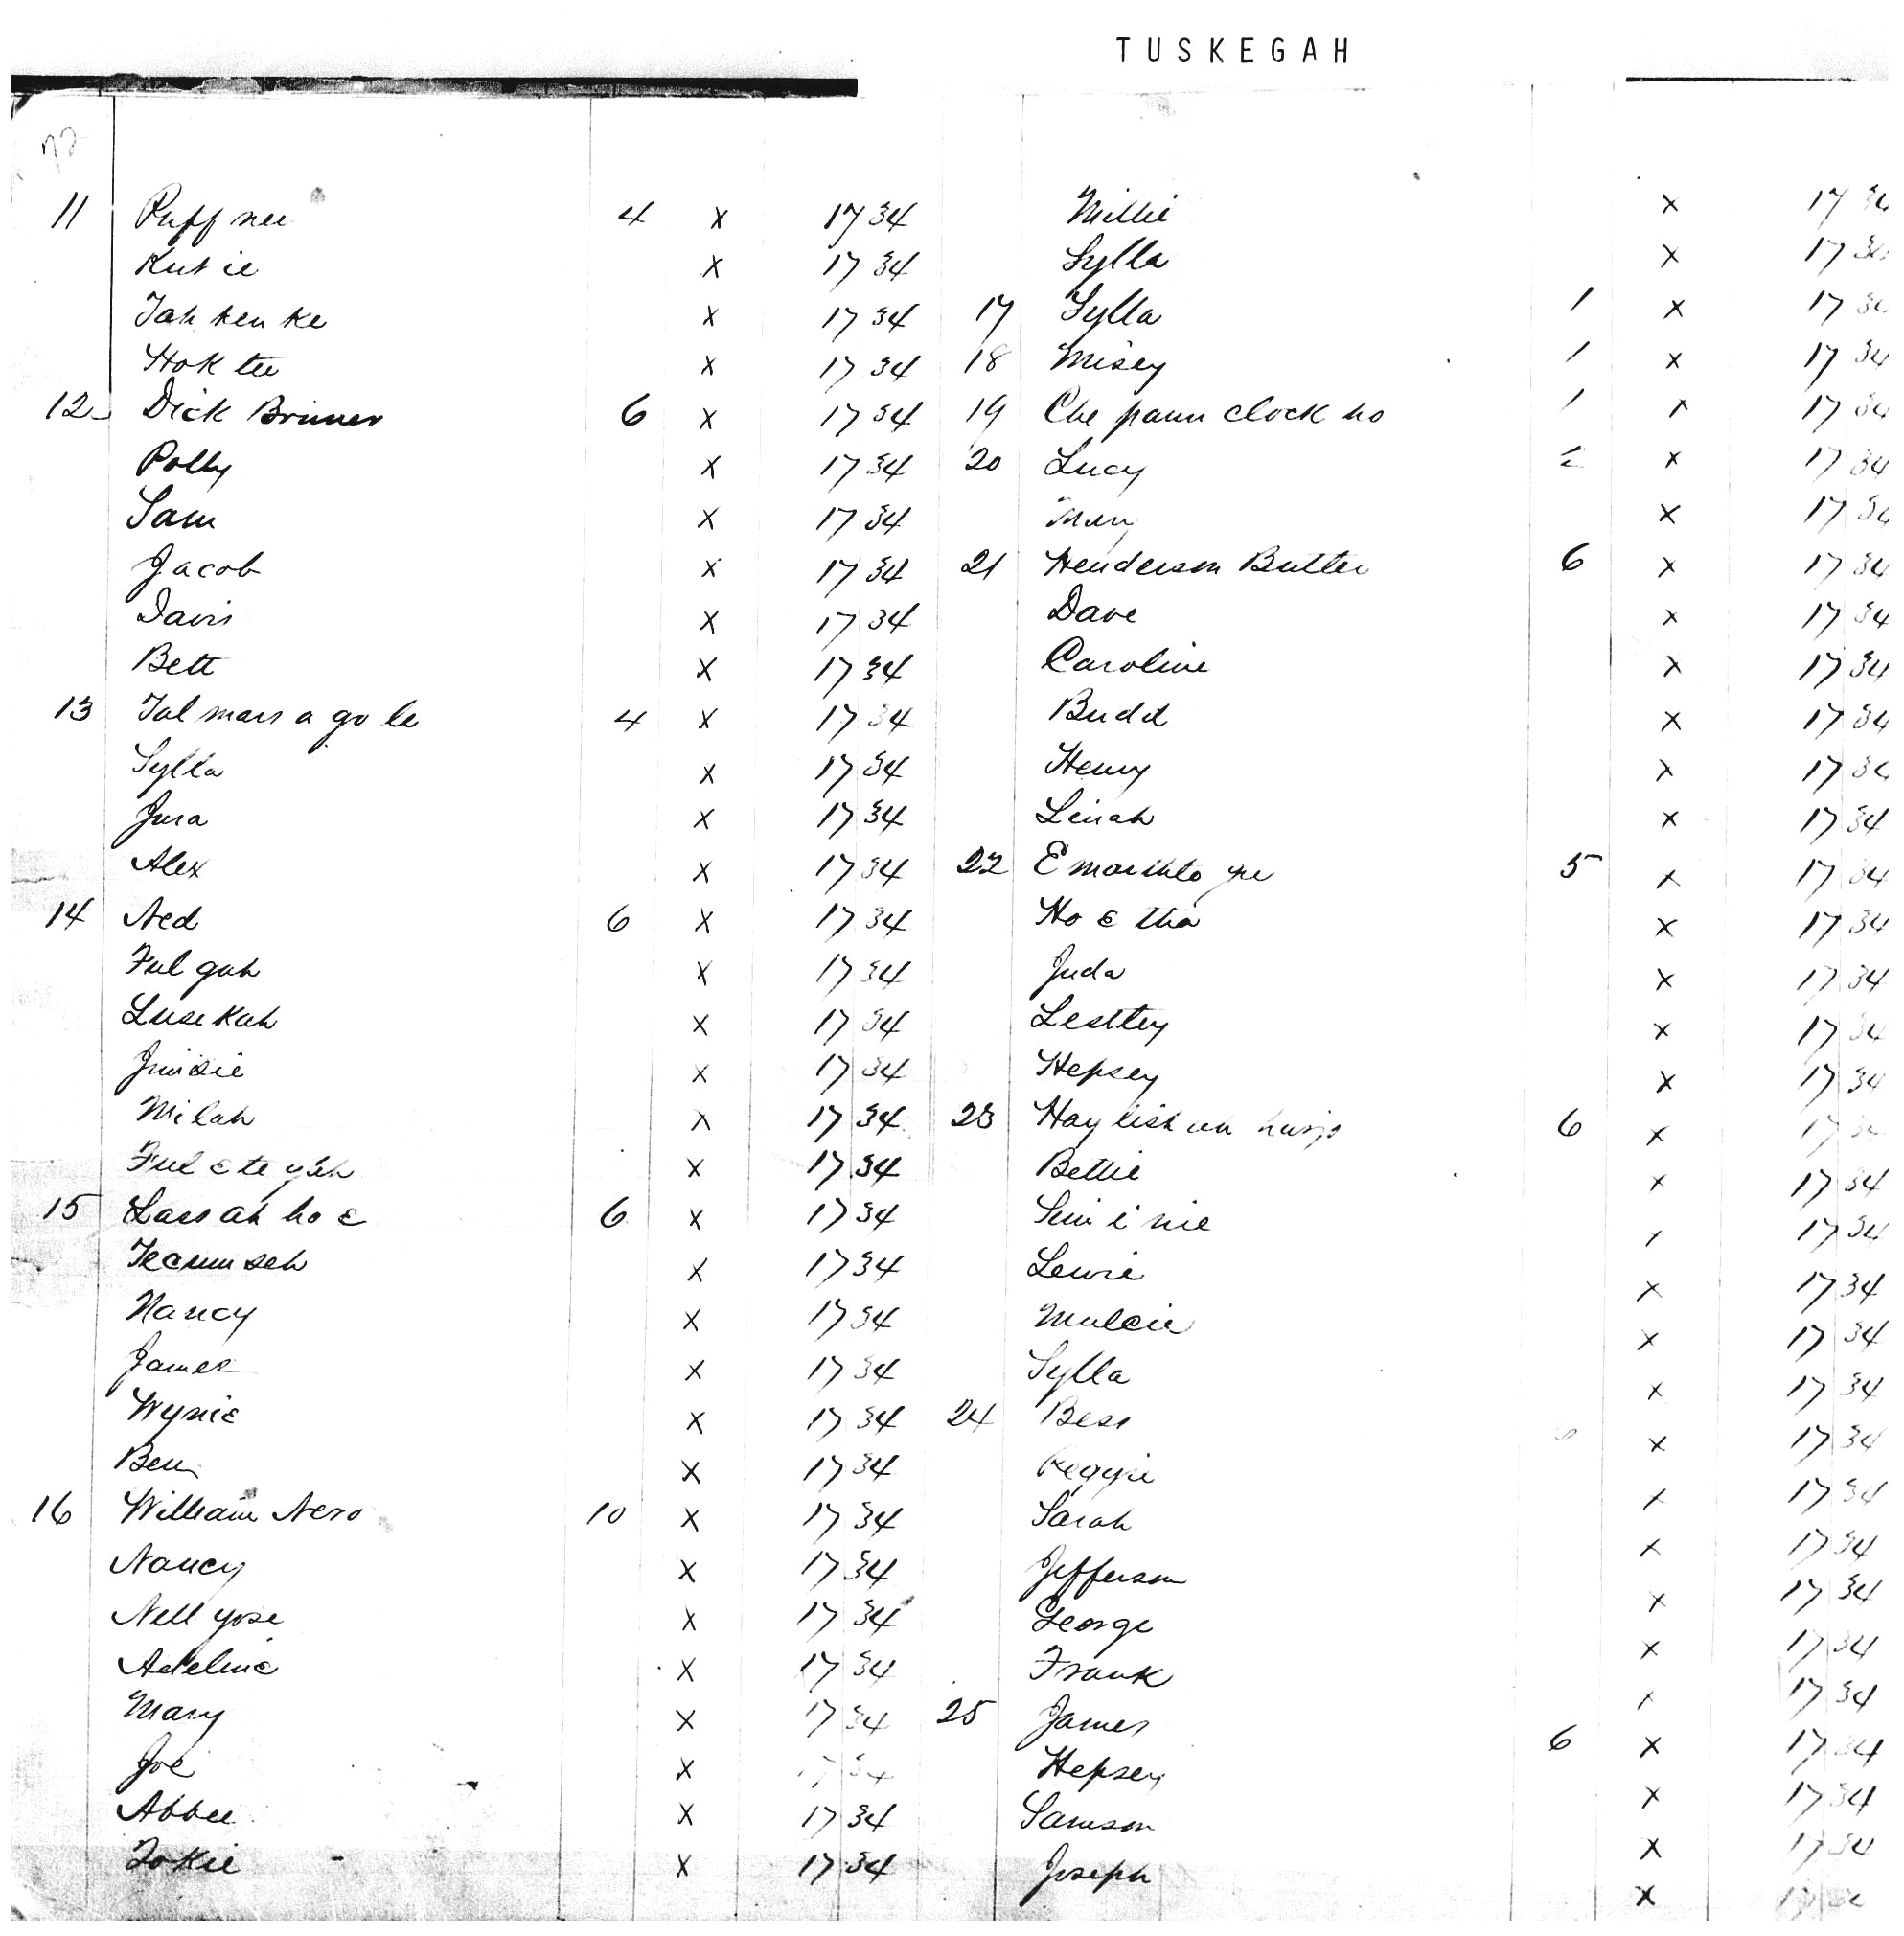 TUSKEGAH
72
11 Puff nee 4 x 17 34
Kut ie x 17 34
Tah ken ke x 17 34
Hok tee x 17 34
12 Dick Bruner 6 x 17 34
Polly x 17 34
Sam x 17 34
Jacob x 17 34
Davis x 17 34
Bett x 17 34
13 Tal mars a go le 4 x 17 34
Sylla x 17 34
Jura x 17 34
Alex x 17 34
14 Ned 6 x 17 34
Ful gah x 17 34
Luse Kah x 17 34
Jinsie x 17 34
Milah x 17 34
Ful c te yah x 17 34
15 Lass ah ho e 6 x 17 34
Tecumseh x 17 34
Nancy x 17 34
James x 17 34
Wynie x 17 34
Ben x 17 34
16 William Nero 10 x 17 34
Nancy x 17 34
Nell yose x 17 34
Adeline x 17 34
Mary x 17 34
Joe x 17 34
Abbee x 17 34
Tokie x 17 34
Millie x 17 34
Sylla x 17 34
17 Sylla 1 x 17 34
18 Misey 1 x 17 34
19 Che paun clock ho 1 x 17 34
20 Lucy 2 x 17 34
Mary x 17 34
21 Henderson Butler 6 x 17 34
Dave x 17 34
Caroline x 17 34
Budd x 17 34
Henry x 17 34
Linah x 17 34
22 E marthto gee 5 x 17 34
Ho e tha x 17 34
Juda x 17 34
Lesttey x 17 34
Hepsey x 17 34
23 Hay lish un harjo 6 x 17 34
Bettie x 17 34
Sim i nie x 17 34
Lewie x 17 34
Mulcie x 17 34
Sylla x 17 34
24 Bess 6 x 17 34
Peggie x 17 34
Sarah x 17 34
Jefferson x 17 34
George x 17 34
Frank x 17 34
25 James 6 x 17 34
Hepsey x 17 34
Samson x 17 34
Joseph x 17 34